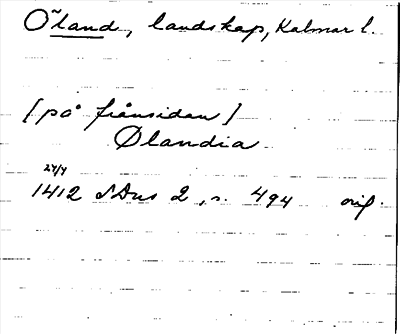 Öland, landskap, Kalmar l.
[på frånsidan]
Ølandia
24/4
1412 SDns 2, s. 494 orig.